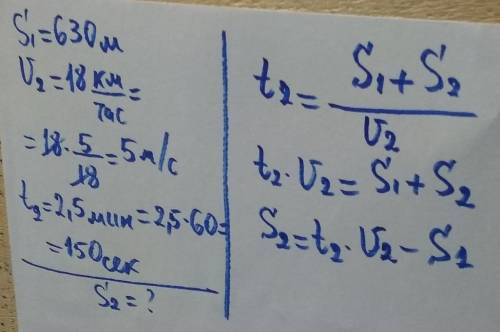 S₁=630м
U₂=18 км/час=
=18·5/18=5м/с
t₂=2,5мин=2,5·60=
=150сек
S₂=?
t₂=(S₁+S₂)/U₂
t₂·U₂=S₁+S₂
S₂=t₂·U₂-S₁